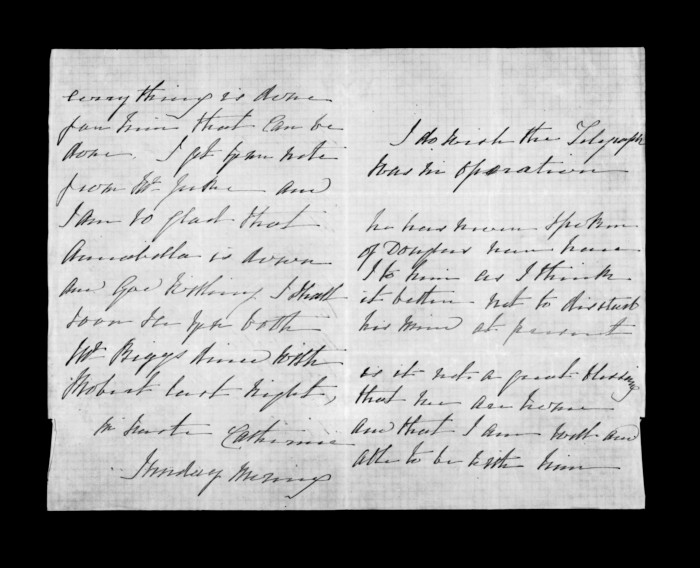 everything is done
for him that can be
done. I got your note
from Mr and
I am so glad that
Annabella is down
and God willing I shall
soon see you both
Mr Riggs dined with
Robert last night,
in haste Catherine
Sunday Morning
I do wish the Telegraph
was in operation
he has never spoken
of Douglas nor have
I to him as I think
it better not to disturb
his mind at present
is it not a great blessing
that we are home
and that I am well and
able to be with him